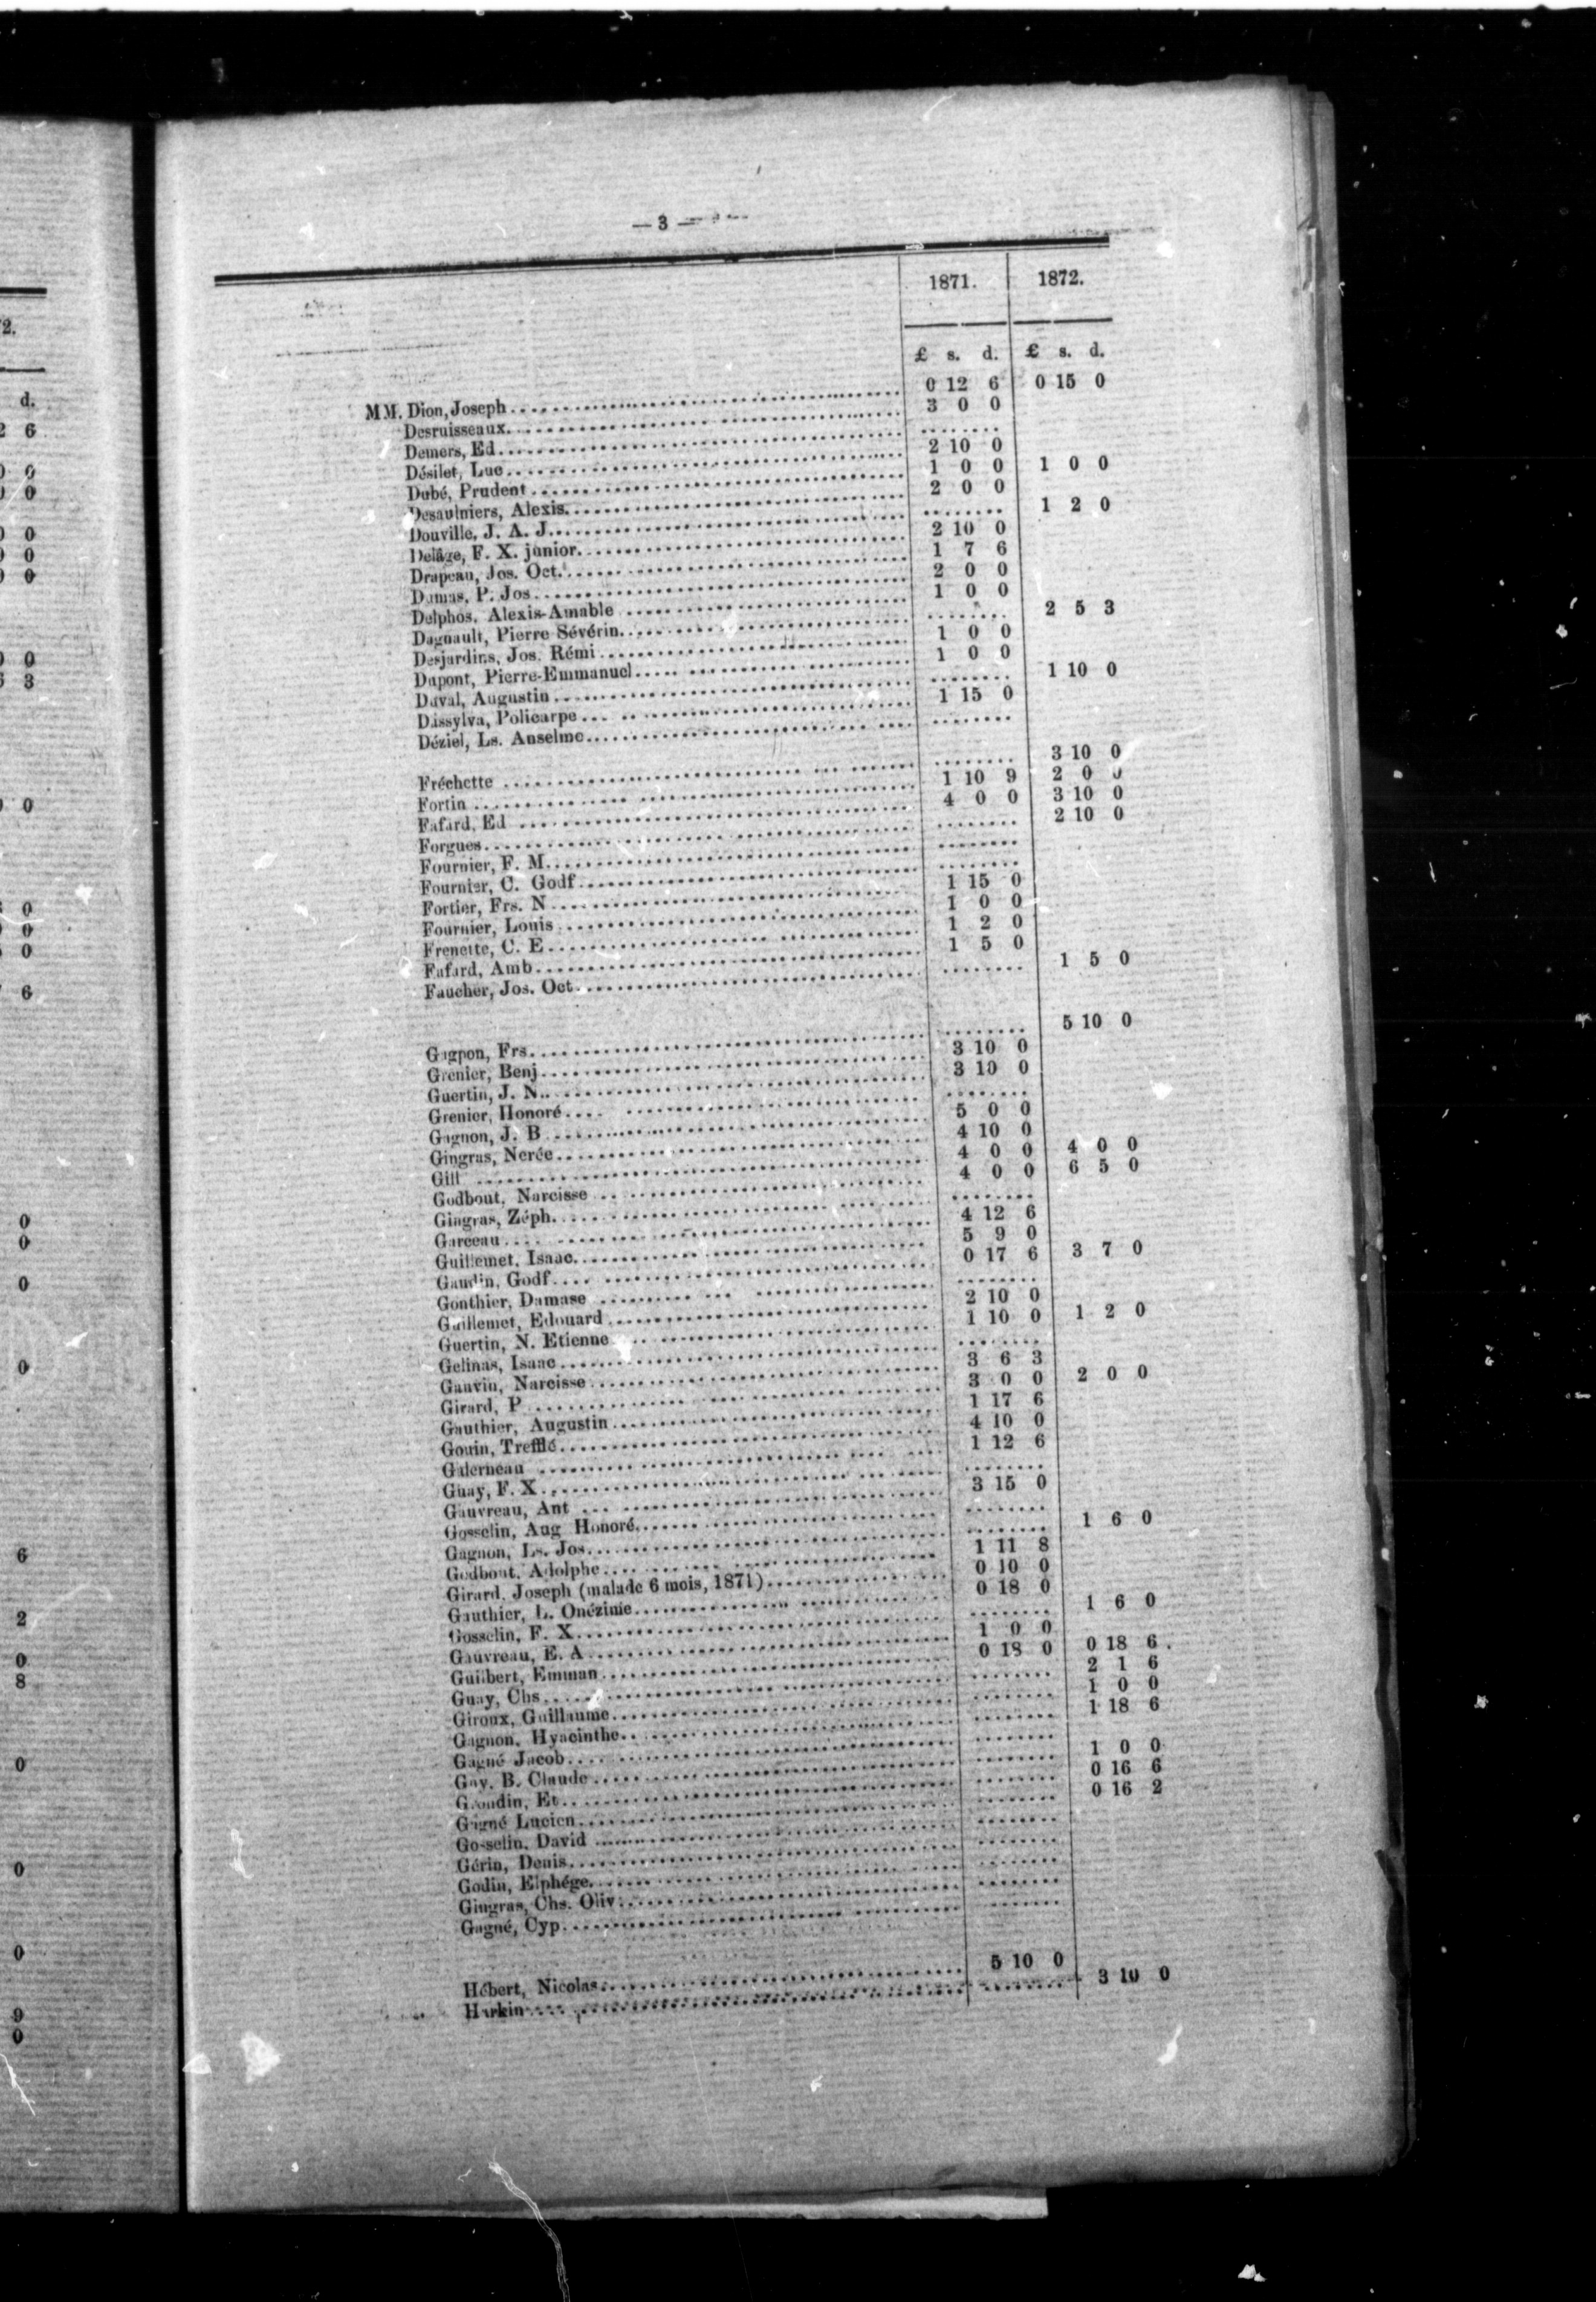 2.
d.
2 6
0 0
0 0
0 0
0 0
0 0
0 0
6 3
0 0
0
0
0
6
0
0
0
0
6
2
0
8
0
0
0
9
0
— 3 —
1871. 1872.
£ s. d. £ s. d.
MM. Dion, Joseph........ 0 12 6 0 15 0
Desruisseaux........ 3 0 0
Demers, Ed........ ........
Désilet, Luc........ 2 10 0
Dubé, Prudent........ 1 0 0 1 0 0
Desaulniers, Alexis........ 2 0 0
Douville, J. A. J........ ........ 1 2 0
Delâge, F. X. junior........ 2 10 0
Drapeau, Jos. Oct........ 1 7 6
Dumas, P. Jos........ 2 0 0
Delphos, Alexis-Amable........ 1 0 0
Dagnault, Pierre Sévérin........ ........ 2 5 3
Desjardins, Jos. Rémi........ 1 0 0
Dupont, Pierre-Emmanuel........ 1 0 0
Duval, Augustin........ ........ 1 10 0
Dassylva, Policarpe........ 1 15 0
Déziel, Ls. Anselme........ ........
Fréchette........ ........ 3 10 0
Fortin........ 1 10 9 2 0 0
Fafard, Ed........ 4 0 0 3 10 0
Forgues........ ........ 2 10 0
Fournier, F. M........ ........
Fournier, C. Godf........ ........
Fortier, Frs. N........ 1 15 0
Fournier, Louis........ 1 0 0
Frenette, C. E........ 1 2 0
Fafard, Amb........ 1 5 0
Faucher, Jos. Oct........ ........ 1 5 0
Gagnon, Frs........ ........ 5 10 0
Grenier, Benj........ 3 10 0
Guertin, J. N........ 3 10 0
Grenier, Honoré........ ........
Gagnon, J. B........ 5 0 0
Gingras, Nerée........ 4 10 0
Gill........ 4 0 0 4 0 0
Godbout, Narcisse........ 4 0 0 6 5 0
Gingras, Zéph........ ........
Garceau........ 4 12 6
Guillemet, Isaac........ 5 9 0
Gaudin, Godf........ 0 17 6 3 7 0
Gonthier, Damase........ ........
Guillemet, Edouard........ 2 10 0
Guertin, N. Etienne........ 1 10 0 1 2 0
Gelinas, Isaac........ ........
Gauvin, Narcisse........ 3 6 3
Girard, P........ 3 0 0 2 0 0
Gauthier, Augustin........ 1 17 6
Gouin, Trefflé........ 4 10 0
Galerneau........ 1 12 6
Guay, F. X........ ........
Gauvreau, Ant........ 3 15 0
Gosselin, Aug Honoré........ ........
Gagnon, Ls. Jos........ ........ 1 6 0
Godbout, Adolphe........ 1 11 8
Girard, Joseph (malade 6 mois, 1871)........ 0 10 0
Gauthier, L. Onézime........ 0 18 0
Gosselin, F. X........ ........ 1 6 0
Gauvreau, E. A........ 1 0 0
Guilbert, Emman........ 0 18 0 0 18 6.
Guay, Chs........ ........ 2 1 6
Giroux, Guillaume........ ........ 1 0 0
Gagnon, Hyacinthe........ ........ 1 18 6
Gagné Jacob........ ........
Guy, B. Claude........ ........ 1 0 0
Grondin, Et........ ........ 0 16 6
Gagné Lucien........ ........ 0 16 2
Gosselin, David........ ........
Gérin, Denis........ ........
Godin, Elphége........ ........
Gingras, Chs. Oliv........ ........
Gagné, Cyp........ ........
Hébert, Nicolas........ 5 10 0
Harkin........ ........ 3 10 0